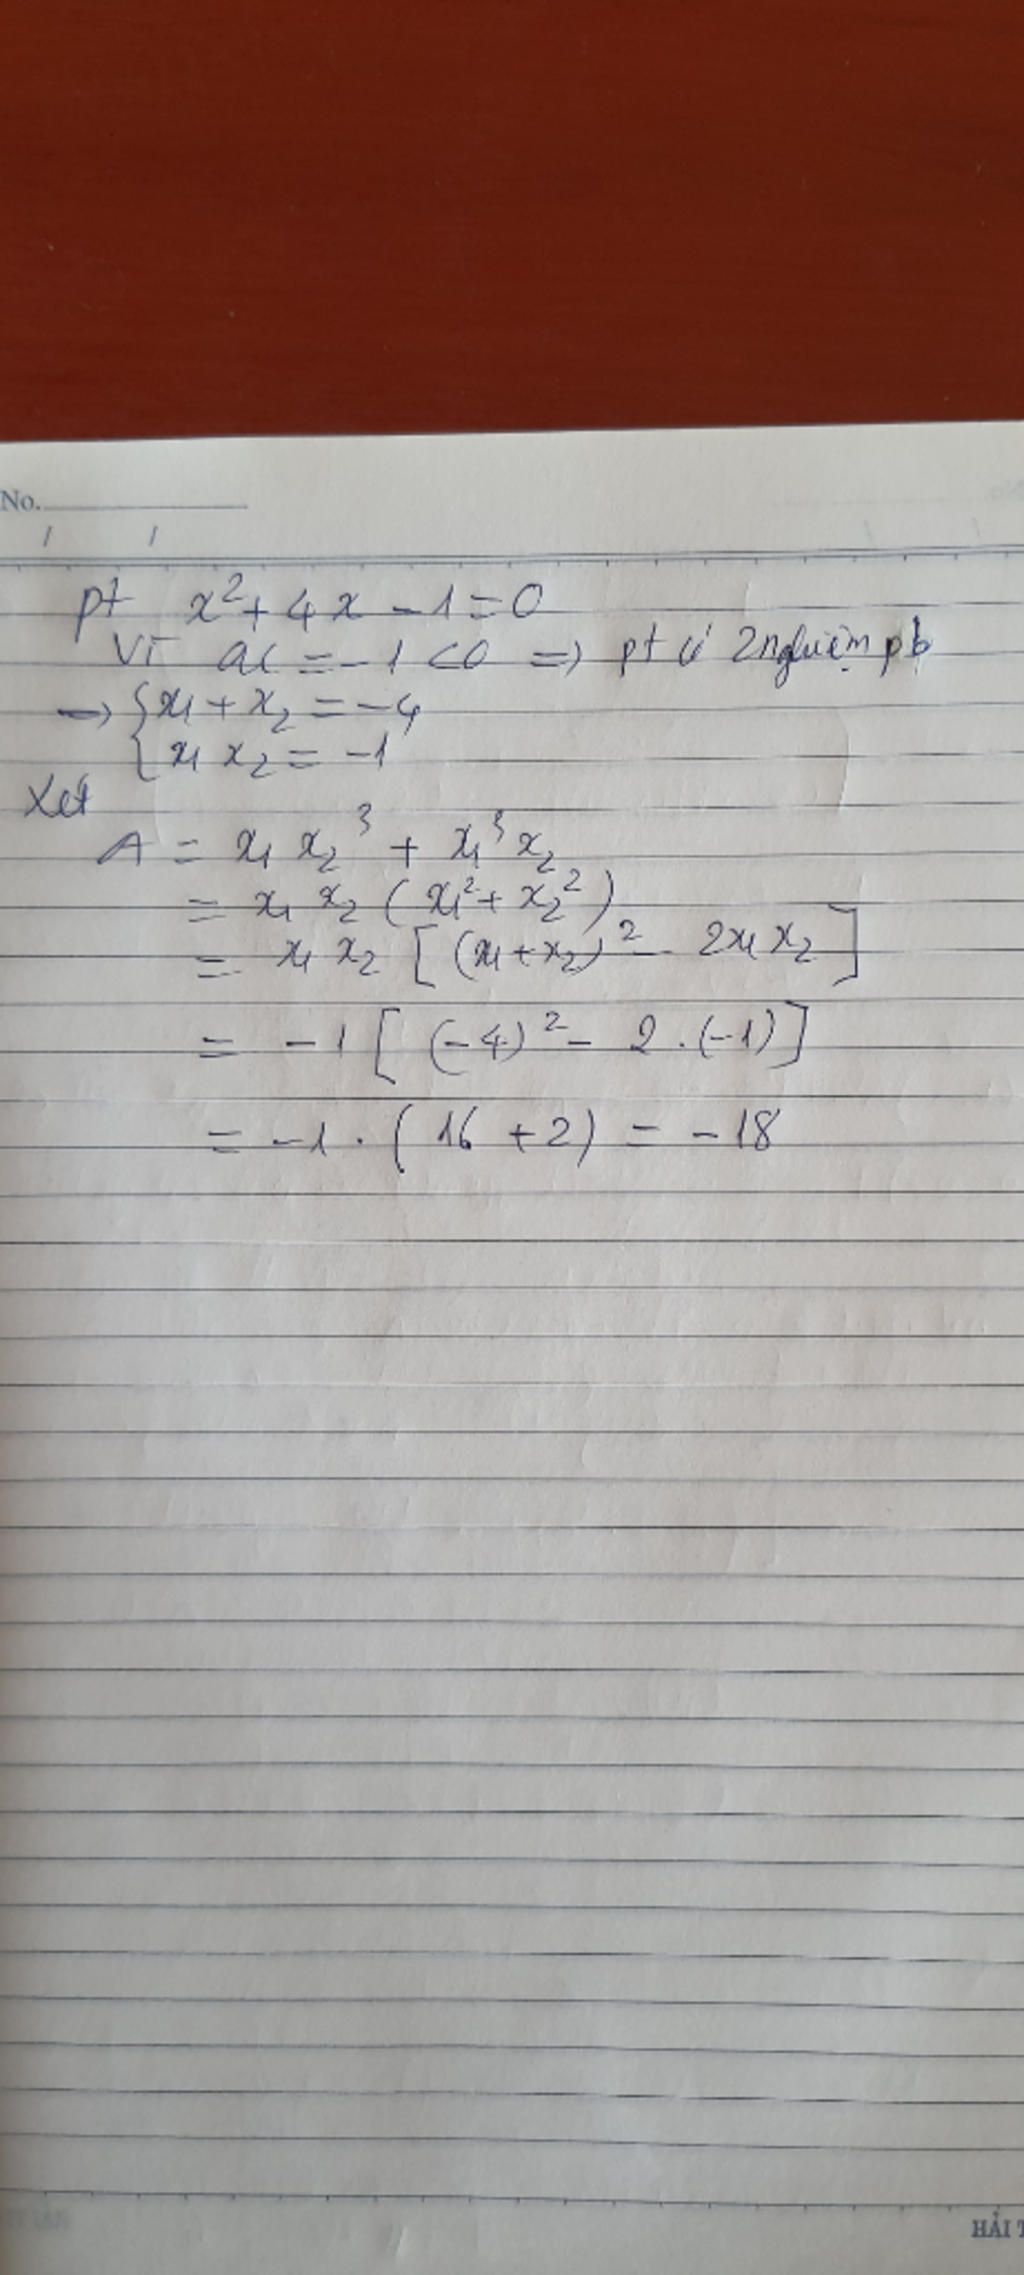 No.
/ /
pt x² + 4x - 1 = 0
Vì ac = -1 < 0 => pt có 2 nghiệm pb
→ { x₁ + x₂ = -4
{ x₁ x₂ = -1
Xét
A = x₁ x₂³ + x₁³ x₂
= x₁ x₂ ( x₁² + x₂² )
= x₁ x₂ [ (x₁ + x₂)² - 2x₁ x₂ ]
= -1 [ (-4)² - 2 . (-1) ]
= -1 . ( 16 + 2 ) = -18
HẢI T